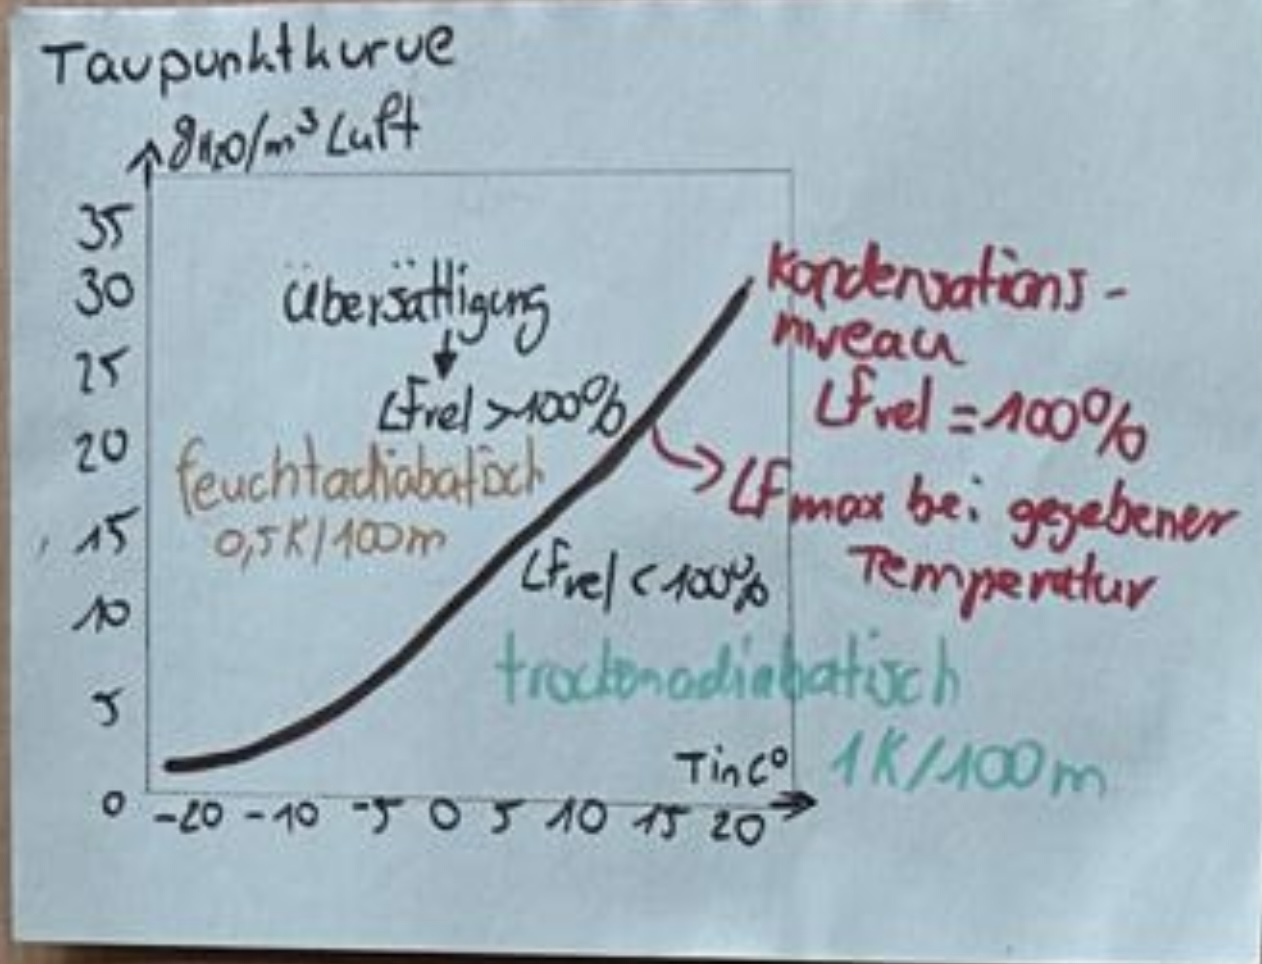 Taupunktkurve
gH₂O/m³ Luft
35
30
25
20
15
10
5
0
Übersättigung
LFrel >100%
feuchtadiabatisch
0,5K/100m
LFrel < 100%
trockenadiabatisch
1K/100m
Kondensations-
niveau
LFrel = 100%
LFmax bei gegebener
Temperatur
T in C°
-20 -10 -5 0 5 10 15 20